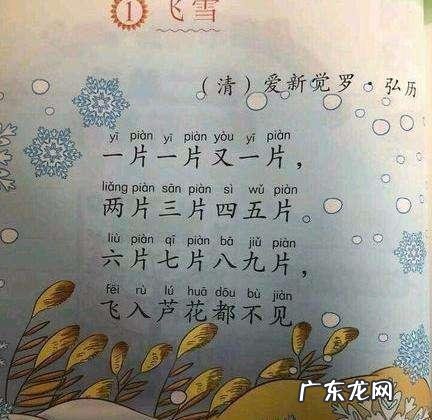 1 飞雪
（清）爱新觉罗·弘历
yī piàn yī piàn yòu yī piàn
一片一片又一片，
liǎng piàn sān piàn sì wǔ piàn
两片三片四五片。
liù piàn qī piàn bā jiǔ piàn
六片七片八九片，
fēi rù lú huā dōu bù jiàn
飞入芦花都不见
广东龙网